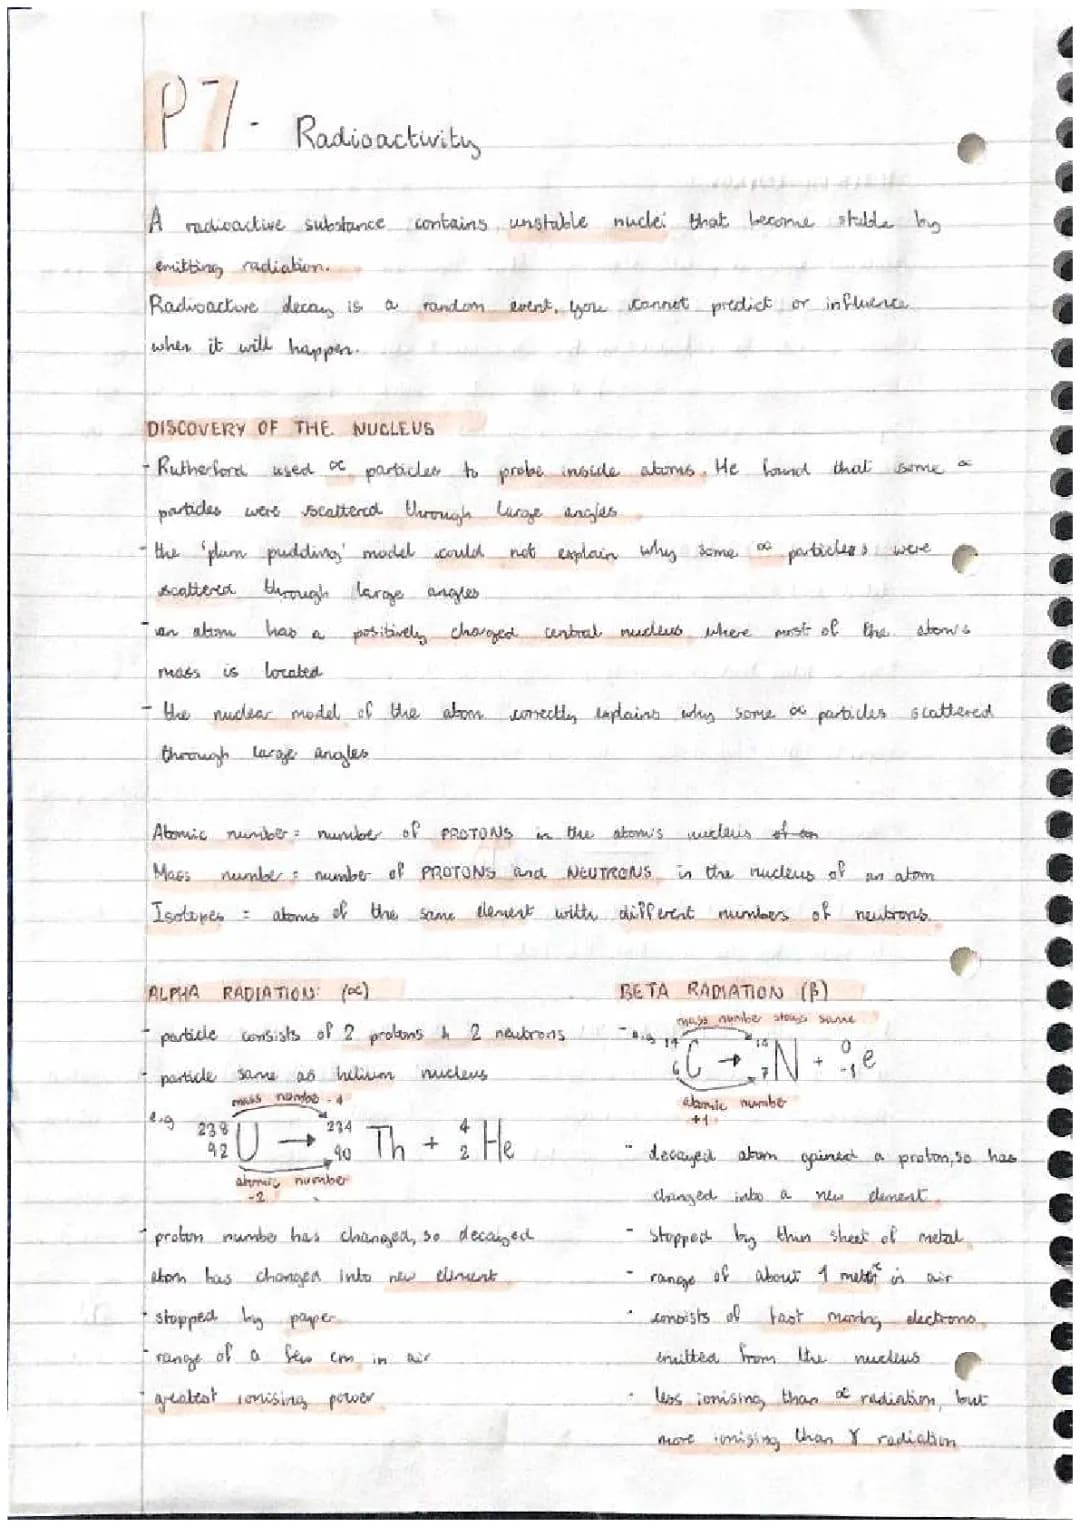 P7 - Radioactivity
A radioactive substance contains unstable nuclei that become stable by
emitting radiation.
Radioactive decay is a random event, you cannot predict or influence
when it will happen.
DISCOVERY OF THE NUCLEUS
- Rutherford used α particles to probe inside atoms. He found that some α
particles were scattered through large angles
- the 'plum pudding' model could not explain why some α particles were
scattered through large angles
- an atom has a positively charged central nucleus where most of the atom's
mass is located
- the nuclear model of the atom correctly explains why some α particles scattered
through large angles
Atomic number = number of PROTONS in the atom's nucleus of an
Mass number = number of PROTONS and NEUTRONS in the nucleus of an atom
Isotopes = atoms of the same element with different numbers of neutrons.
ALPHA RADIATION: (α)
- particle consists of 2 protons & 2 neutrons
- particle same as helium nucleus
mass number - 4
e.g ²³⁸₉₂U → ²³⁴₉₀Th + ⁴₂He
atomic number
-2
- proton number has changed, so decayed
atom has changed into new element
- stopped by paper
- range of a few cm in air
- greatest ionising power
BETA RADIATION (β)
mass number stays same
- e.g ¹⁴₆C → ¹⁴₇N + ⁰₋₁e
atomic number
+1
- decayed atom gained a proton, so has
changed into a new element
- stopped by thin sheet of metal
- range of about 1 metre in air
- consists of fast moving electrons
emitted from the nucleus
- less ionising than α radiation, but
more ionising than γ radiation